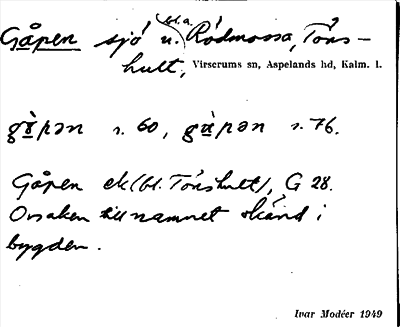 Gåpen sjö u. (bl. a. Rödmossa, Töns-
hult, Virserums sn, Aspelands hd, Kalm. l.
gɑ̀pən s. 60, gɑ̀pən s. 76.
Gåpen ek (bl. Tönshult), G 28.
Orsaken till namnet okänd i
bygden.
Ivar Modéer 1949